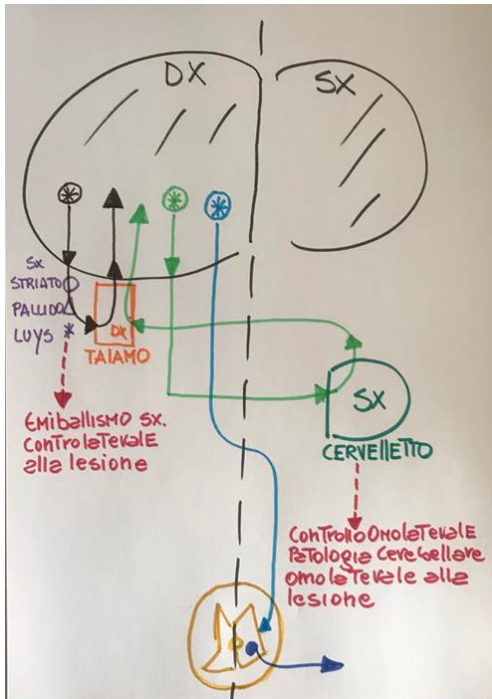 DX
SX
SX
STRIATO
PALLIDO
LUYS *
DX
TAlAMO
EMIBALLISMO SX.
CONTROLATERALE
alla lesione
SX
CERVELLETTO
CONTROllO OMOlATERALE
PATOLOGIA CEREBELLARE
OMOLATERALE alla
lesione